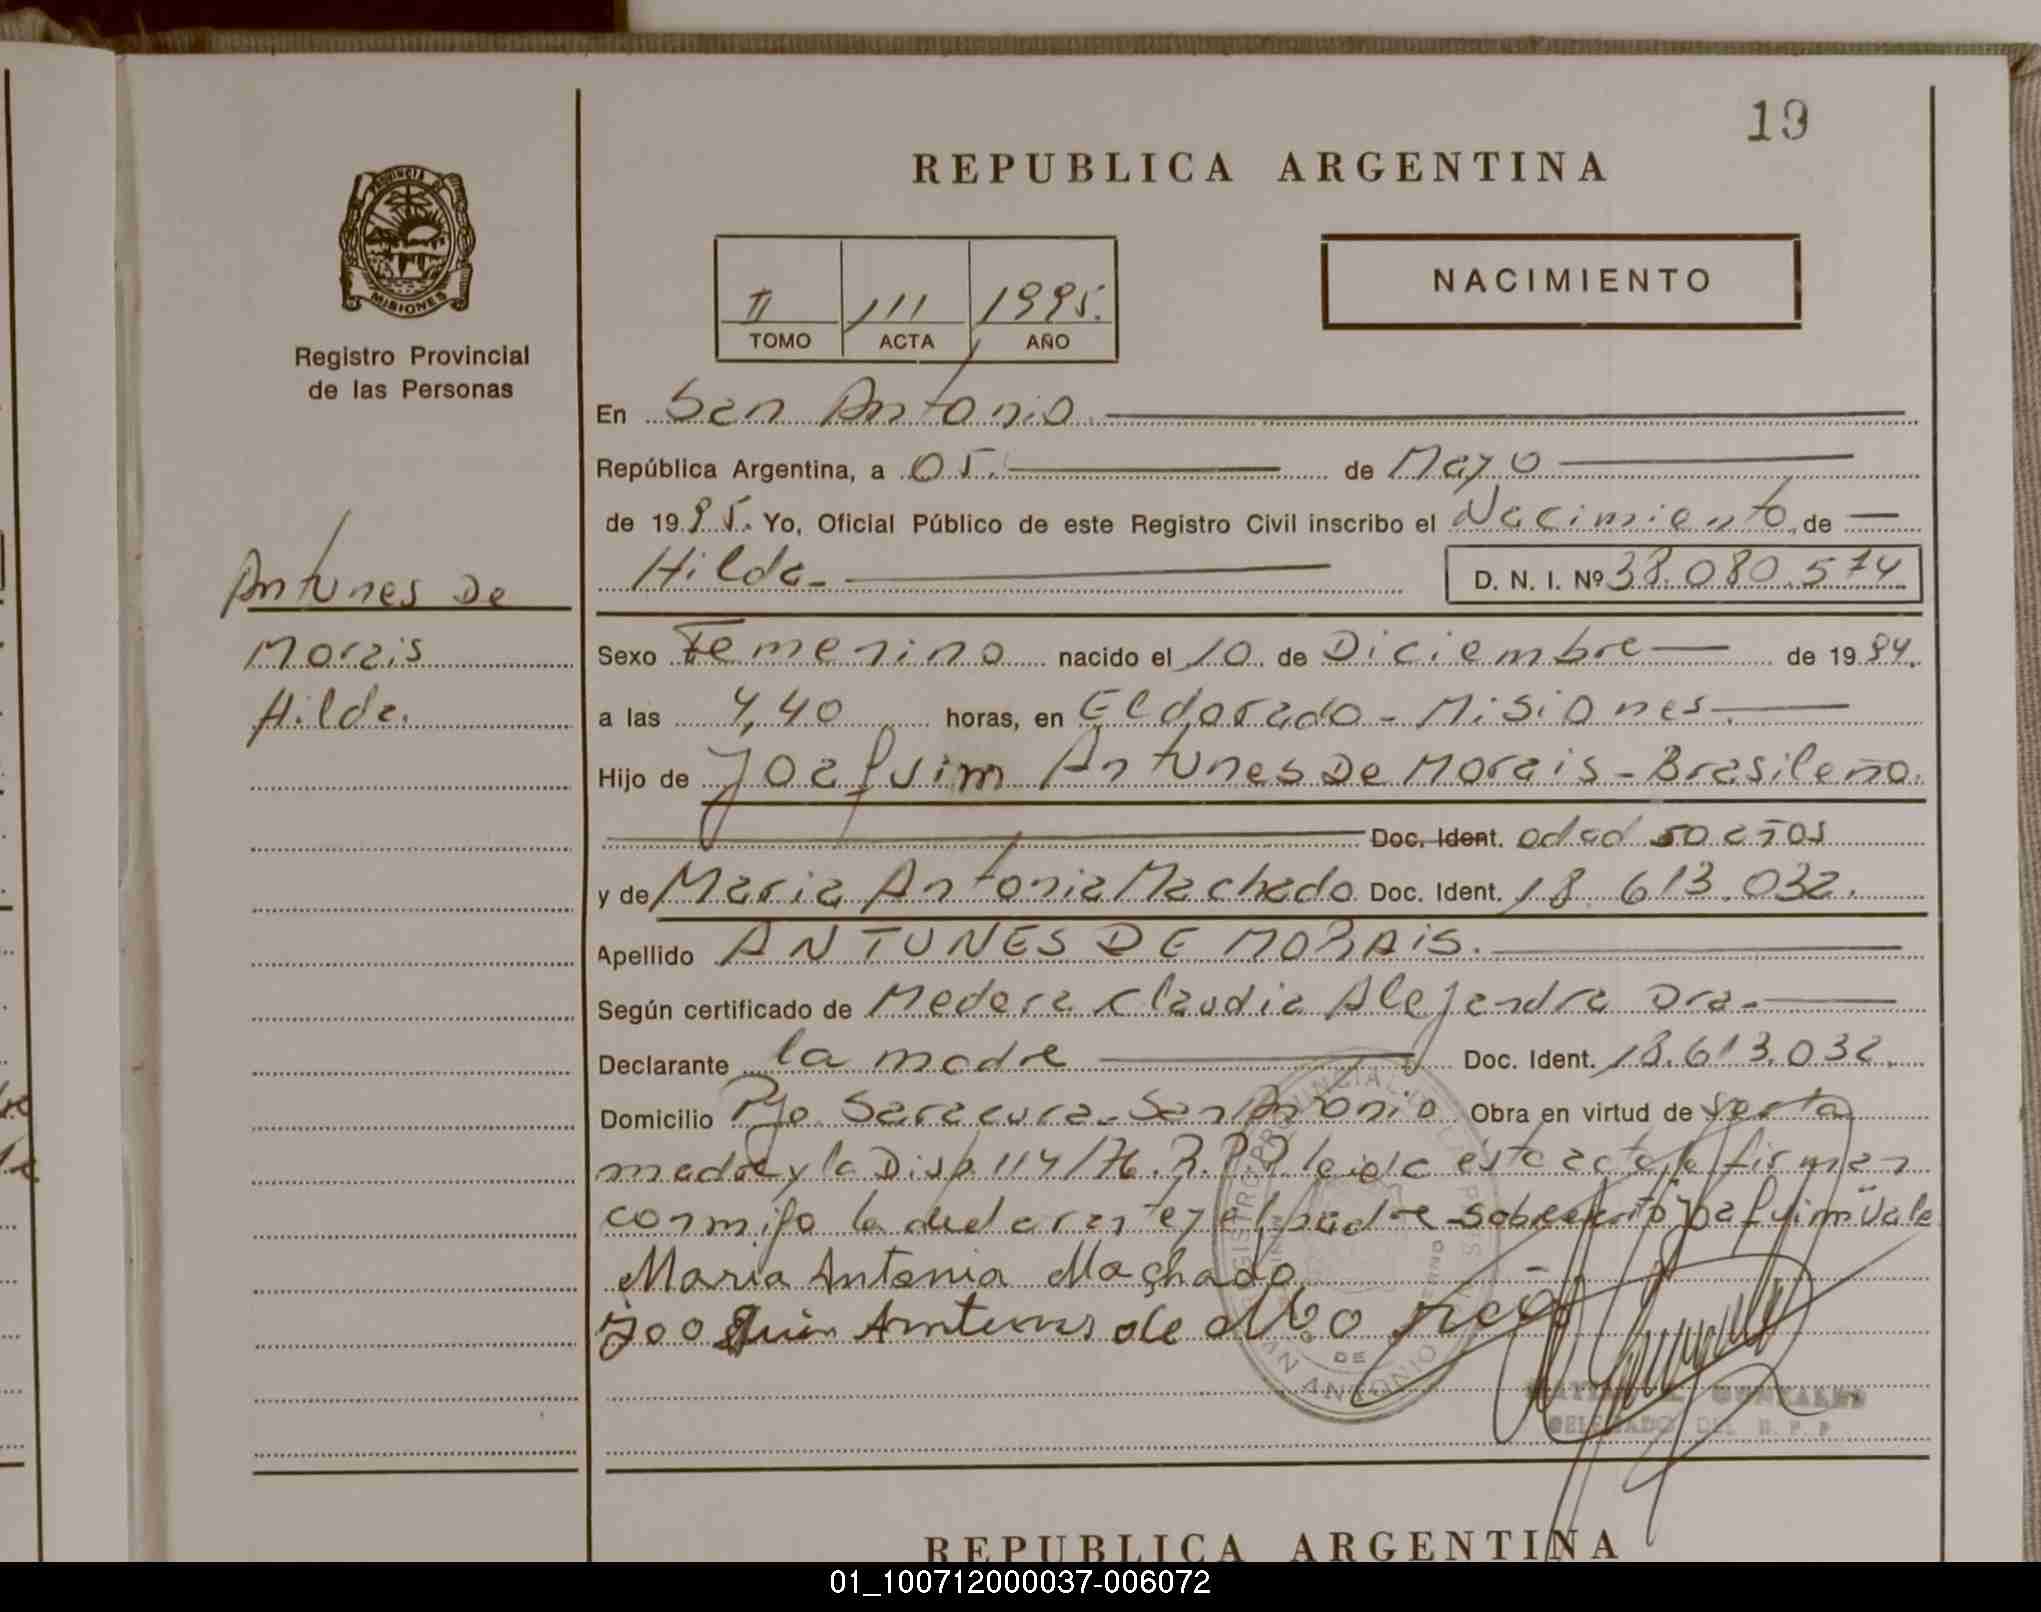 19
REPUBLICA ARGENTINA
PROVINCIA DE
MISIONES
Registro Provincial
de las Personas
II 111 1995.
TOMO ACTA AÑO
NACIMIENTO
En San Antonio
República Argentina, a 05. de Mayo
de 1995. Yo, Oficial Público de este Registro Civil inscribo el Nacimiento de
Hilda D. N. I. Nº 38.080.574
Antunes De
Morais
Hilda.
Sexo Femenino nacido el 10 de Diciembre de 1994.
a las 4,40 horas, en Eldorado - Misiones
Hijo de Joaquim Antunes De Morais - Brasileño.
Doc. Ident. edad 50 años
y de Maria Antonia Machado Doc. Ident. 18.613.032.
Apellido ANTUNES DE MORAIS.
Según certificado de Medera Claudia Alejandra Dra.
Declarante la madre Doc. Ident. 18.613.032.
Domicilio Pje. Saracura - San Antonio Obra en virtud de
madre y la Disp. 114/76. R.P.P leida este acta la firman
conmigo la declarante y el padre - sobreescrito "Joaquim" Vale
Maria Antonia Machado
Joaquin Antunes de Morais
DE
SAN ANTONIO
GONZALEZ
DELEGADO DEL R. P. P
REPUBLICA ARGENTINA
01_100712000037-006072